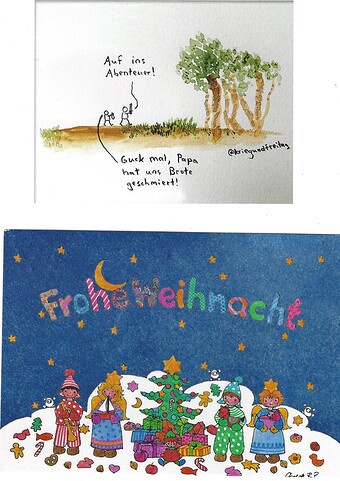 Auf ins
Abenteuer!
Guck mal, Papa
hat uns Brote
geschmiert!
@kriegundfreitag
Frohe Weihnacht